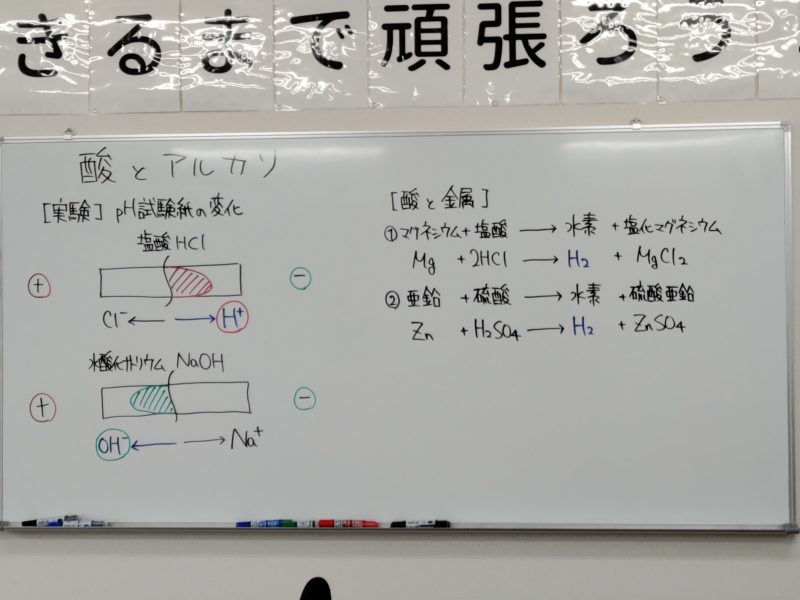 きるまで頑張ろう
酸とアルカリ
[実験] pH試験紙の変化
塩酸 HCl
+ −
Cl⁻ ← → H⁺
水酸化ナトリウム NaOH
+ −
OH⁻ ← → Na⁺
[酸と金属]
①マグネシウム+塩酸 → 水素 + 塩化マグネシウム
Mg + 2HCl → H₂ + MgCl₂
②亜鉛 + 硫酸 → 水素 + 硫酸亜鉛
Zn + H₂SO₄ → H₂ + ZnSO₄